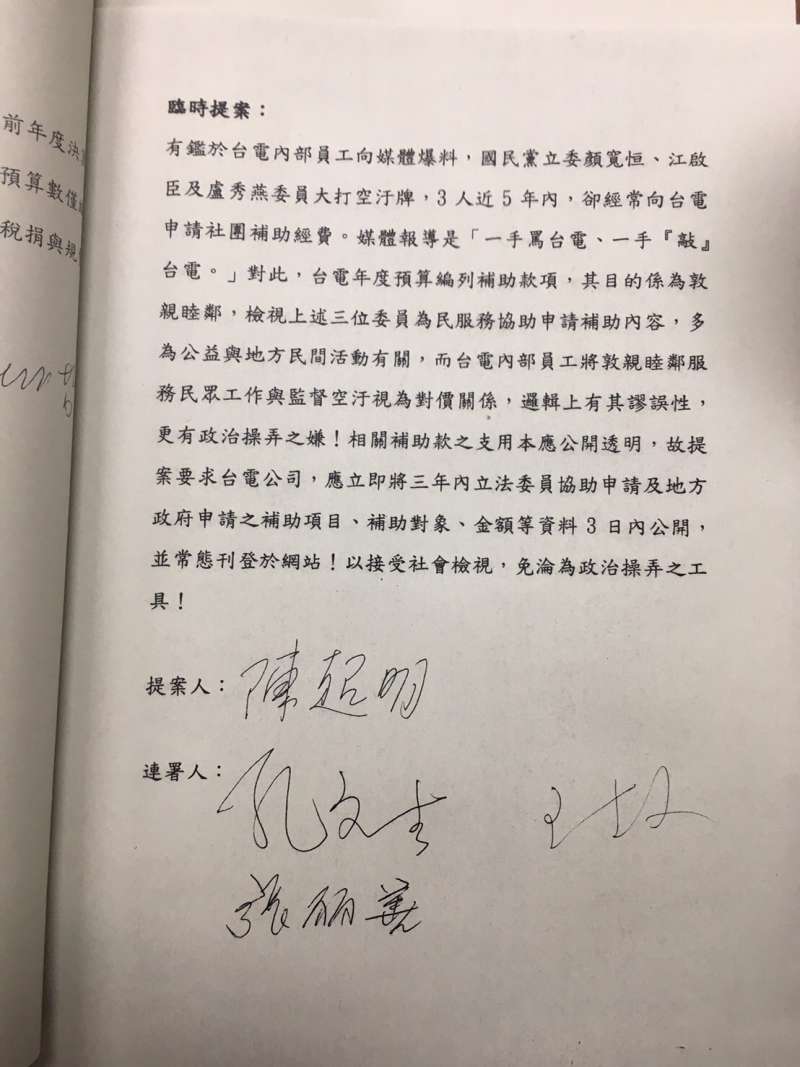 前年度決
預算數僅
稅捐與規
臨時提案：
有鑑於台電內部員工向媒體爆料，國民黨立委顏寬恒、江啟
臣及盧秀燕委員大打空汙牌，3人近5年內，卻經常向台電
申請社團補助經費。媒體報導是「一手罵台電、一手『敲』
台電。」對此，台電年度預算編列補助款項，其目的係為敦
親睦鄰，檢視上述三位委員為民服務協助申請補助內容，多
為公益與地方民間活動有關，而台電內部員工將敦親睦鄰服
務民眾工作與監督空汙視為對價關係，邏輯上有其謬誤性，
更有政治操弄之嫌！相關補助款之支用本應公開透明，故提
案要求台電公司，應立即將三年內立法委員協助申請及地方
政府申請之補助項目、補助對象、金額等資料3日內公開，
並常態刊登於網站！以接受社會檢視，免淪為政治操弄之工
具！
提案人：陳超明
連署人：孔文吉
張麗善